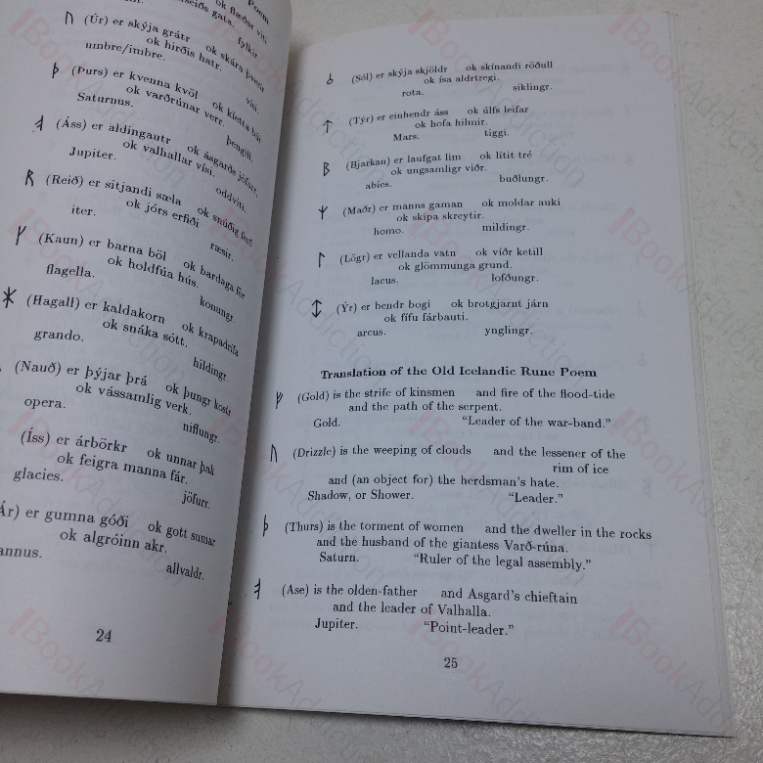 Poem
ok flæðar viti
gata. fylkir.
ᚢ (Úr) er skýja grátr ok skára þverrir
ok hirðis hatr.
umbre/imbre. vísi.
ᚦ (Þurs) er kvenna kvöl ok kletta búi
ok varðrúnar verr.
Saturnus. þengill.
(Áss) er aldingautr ok ásgarðs jöfurr,
ok valhallar vísi.
Jupiter. oddviti.
ᚱ (Reið) er sitjandi sæla ok snúðig ferð
ok jórs erfiði
iter. ræsir.
ᚴ (Kaun) er barna böl ok bardaga för
ok holdfúa hús.
flagella. konungr.
ᚼ (Hagall) er kaldakorn ok krapadrífa
ok snáka sótt.
grando. hildingr.
(Nauð) er þýjar þrá ok þungr kostr
ok vássamlig verk.
opera. niflungr.
(Íss) er árbörkr ok unnar þak
ok feigra manna fár.
glacies. jöfurr.
Ár) er gumna góði ok gott sumar
ok algróinn akr.
annus. allvaldr.
24
(Sól) er skýja skjöldr ok skínandi röðull
ok ísa aldrtregi.
rota. siklingr.
ᛏ (Týr) er einhendr áss ok úlfs leifar
ok hofa hilmir.
Mars. tiggi.
ᛒ (Bjarkan) er laufgat lim ok lítit tré
ok ungsamligr viðr.
abies. buðlungr.
(Maðr) er manns gaman ok moldar auki
ok skipa skreytir.
homo. mildingr.
ᛚ (Lögr) er vellanda vatn ok víðr ketill
ok glömmunga grund.
lacus. lofðungr.
(Ýr) er bendr bogi ok brotgjarnt járn
ok fífu fárbauti.
arcus. ynglingr.
Translation of the Old Icelandic Rune Poem
ᚠ (Gold) is the strife of kinsmen and fire of the flood-tide
and the path of the serpent.
Gold. “Leader of the war-band.”
ᚢ (Drizzle) is the weeping of clouds and the lessener of the
rim of ice
and (an object for) the herdsman's hate.
Shadow, or Shower. “Leader.”
ᚦ (Thurs) is the torment of women and the dweller in the rocks
and the husband of the giantess Varð-rúna.
Saturn. “Ruler of the legal assembly.”
(Ase) is the olden-father and Asgard's chieftain
and the leader of Valhalla.
Jupiter. “Point-leader.”
25